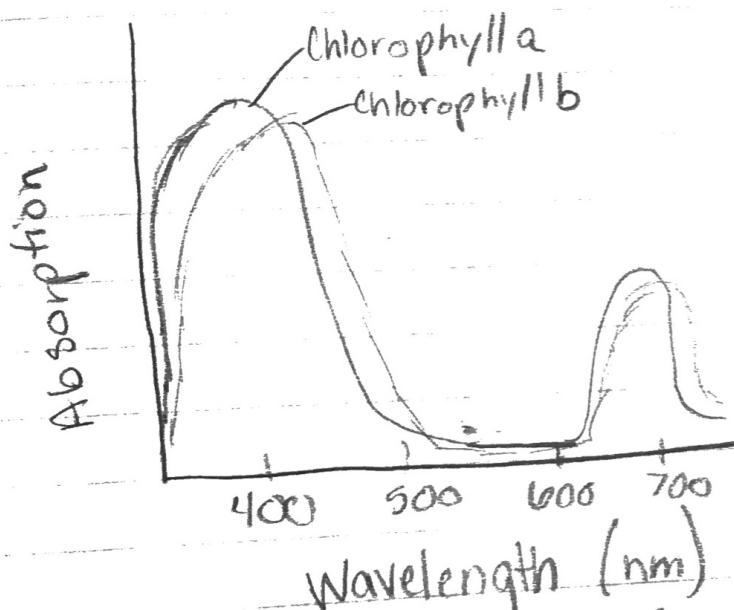 Chlorophyll a
Chlorophyll b
Absorption
400 500 600 700
Wavelength (nm)